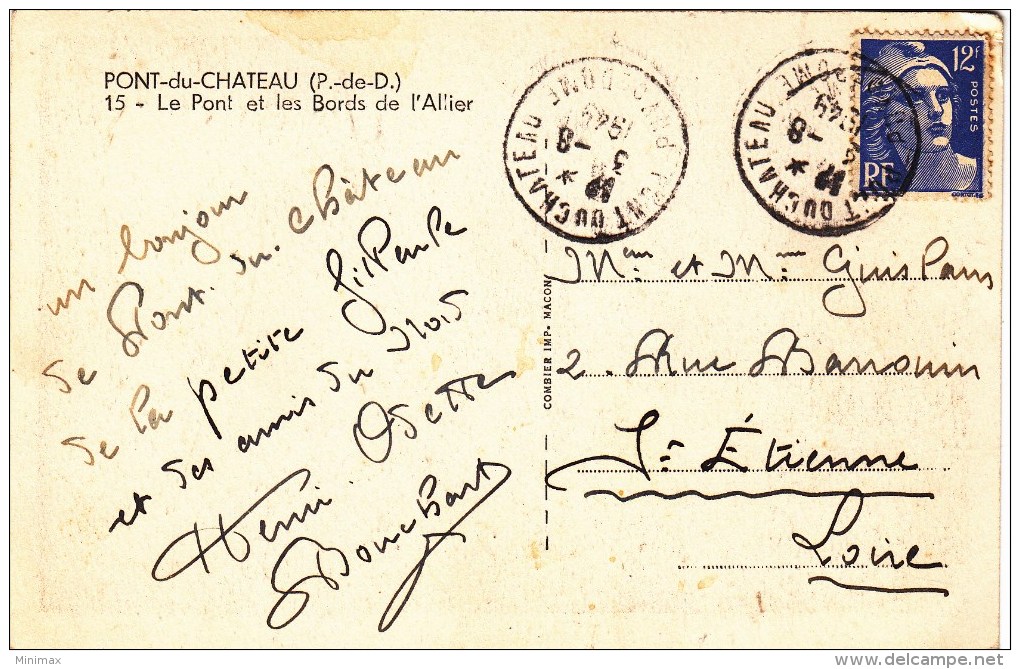 PONT-du-CHATEAU (P.-de-D.)
15 - Le Pont et les Bords de l'Allier
un bonjour
de Pont. du. Château
de la petite
et des amis du
Odette
Henri
Bouchart
COMBIER IMP. MACON
PONT DU CHATEAU * PUY DE DOME
3 -8
1949
PONT DU CHATEAU * PUY DE DOME
-8
1949
12F
POSTES
RF
Mr et Mme
2. Rue
St Étienne
Loire
Minimax
www.delcampe.net